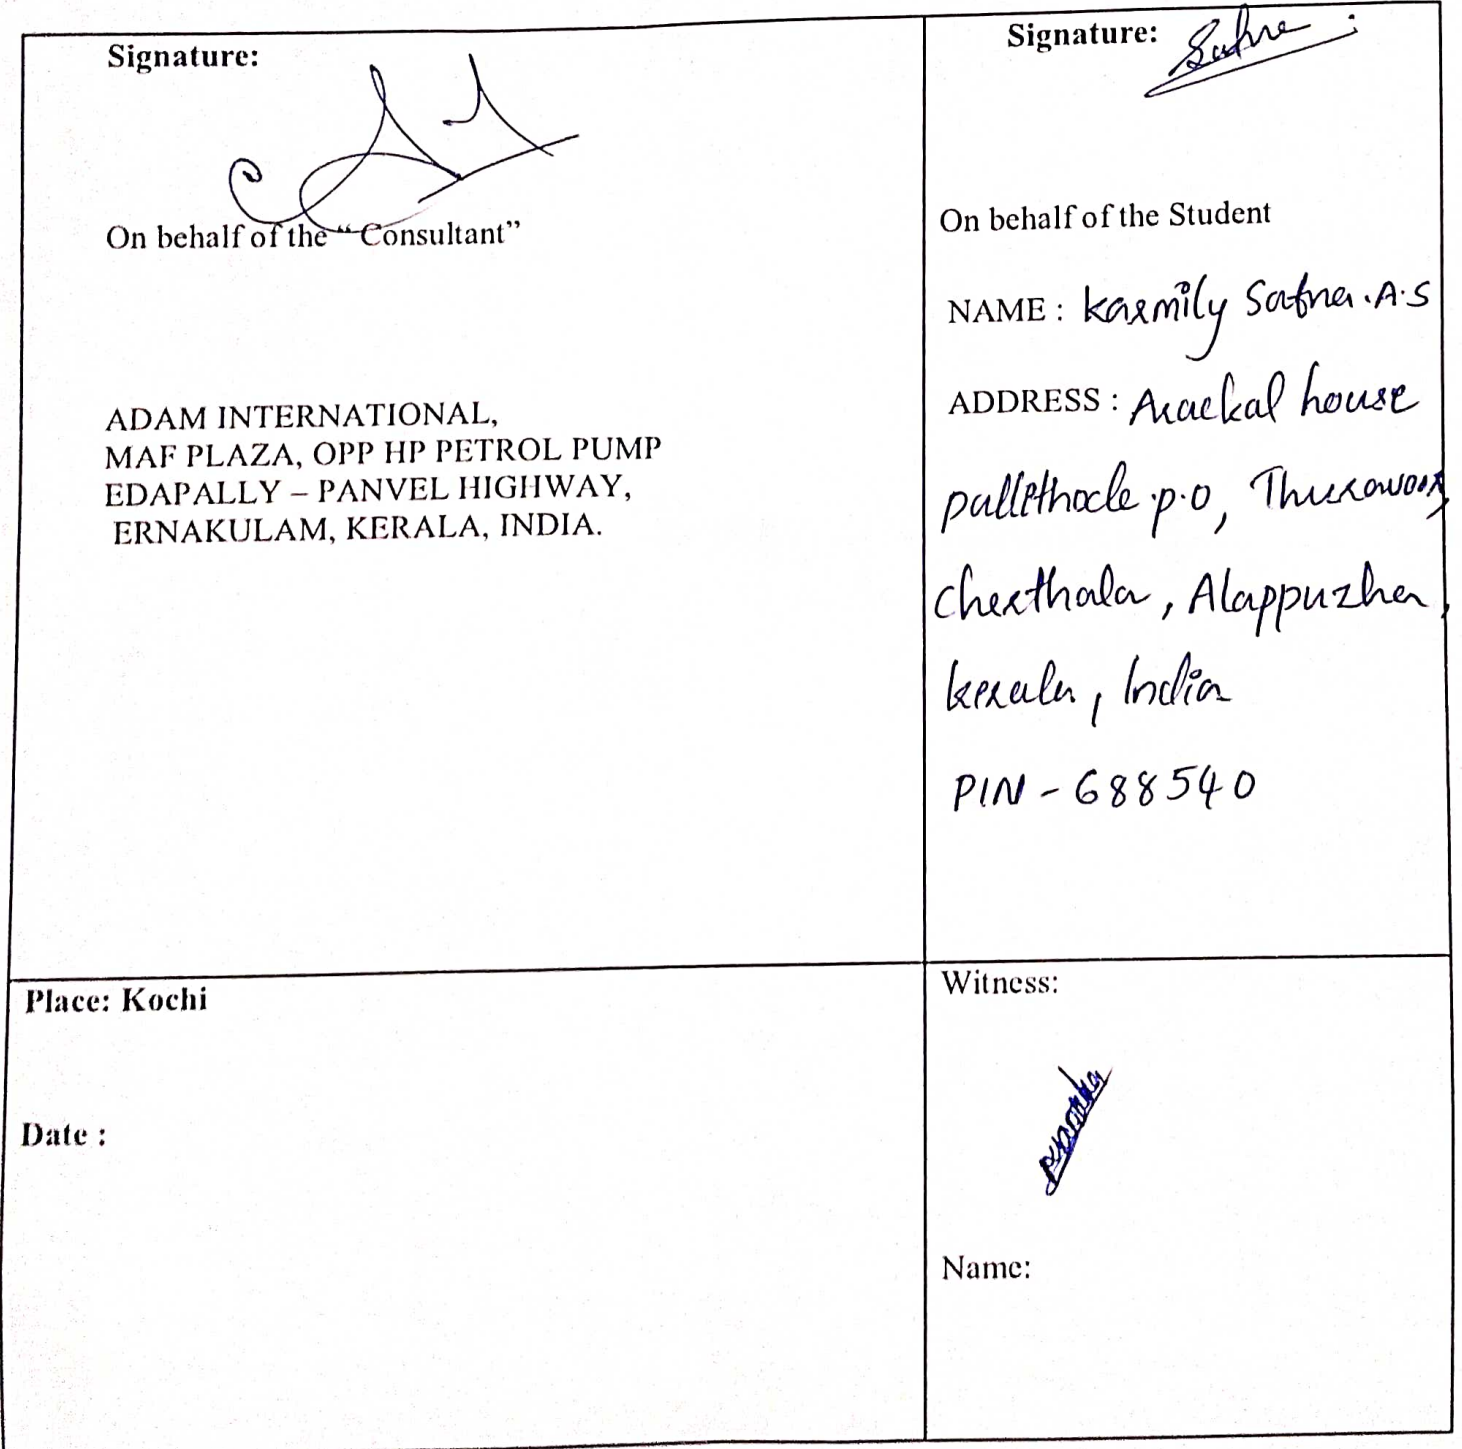 Signature:
On behalf of the “Consultant”
ADAM INTERNATIONAL,
MAF PLAZA, OPP HP PETROL PUMP
EDAPALLY – PANVEL HIGHWAY,
ERNAKULAM, KERALA, INDIA.
Signature: Safna
On behalf of the Student
NAME : Karmily Safna.A.S
ADDRESS : Arackal house
pallithode p.o, Thuravoor,
cherthala, Alappuzha,
kerala, India
PIN - 688540
Place: Kochi
Date :
Witness:
Name: